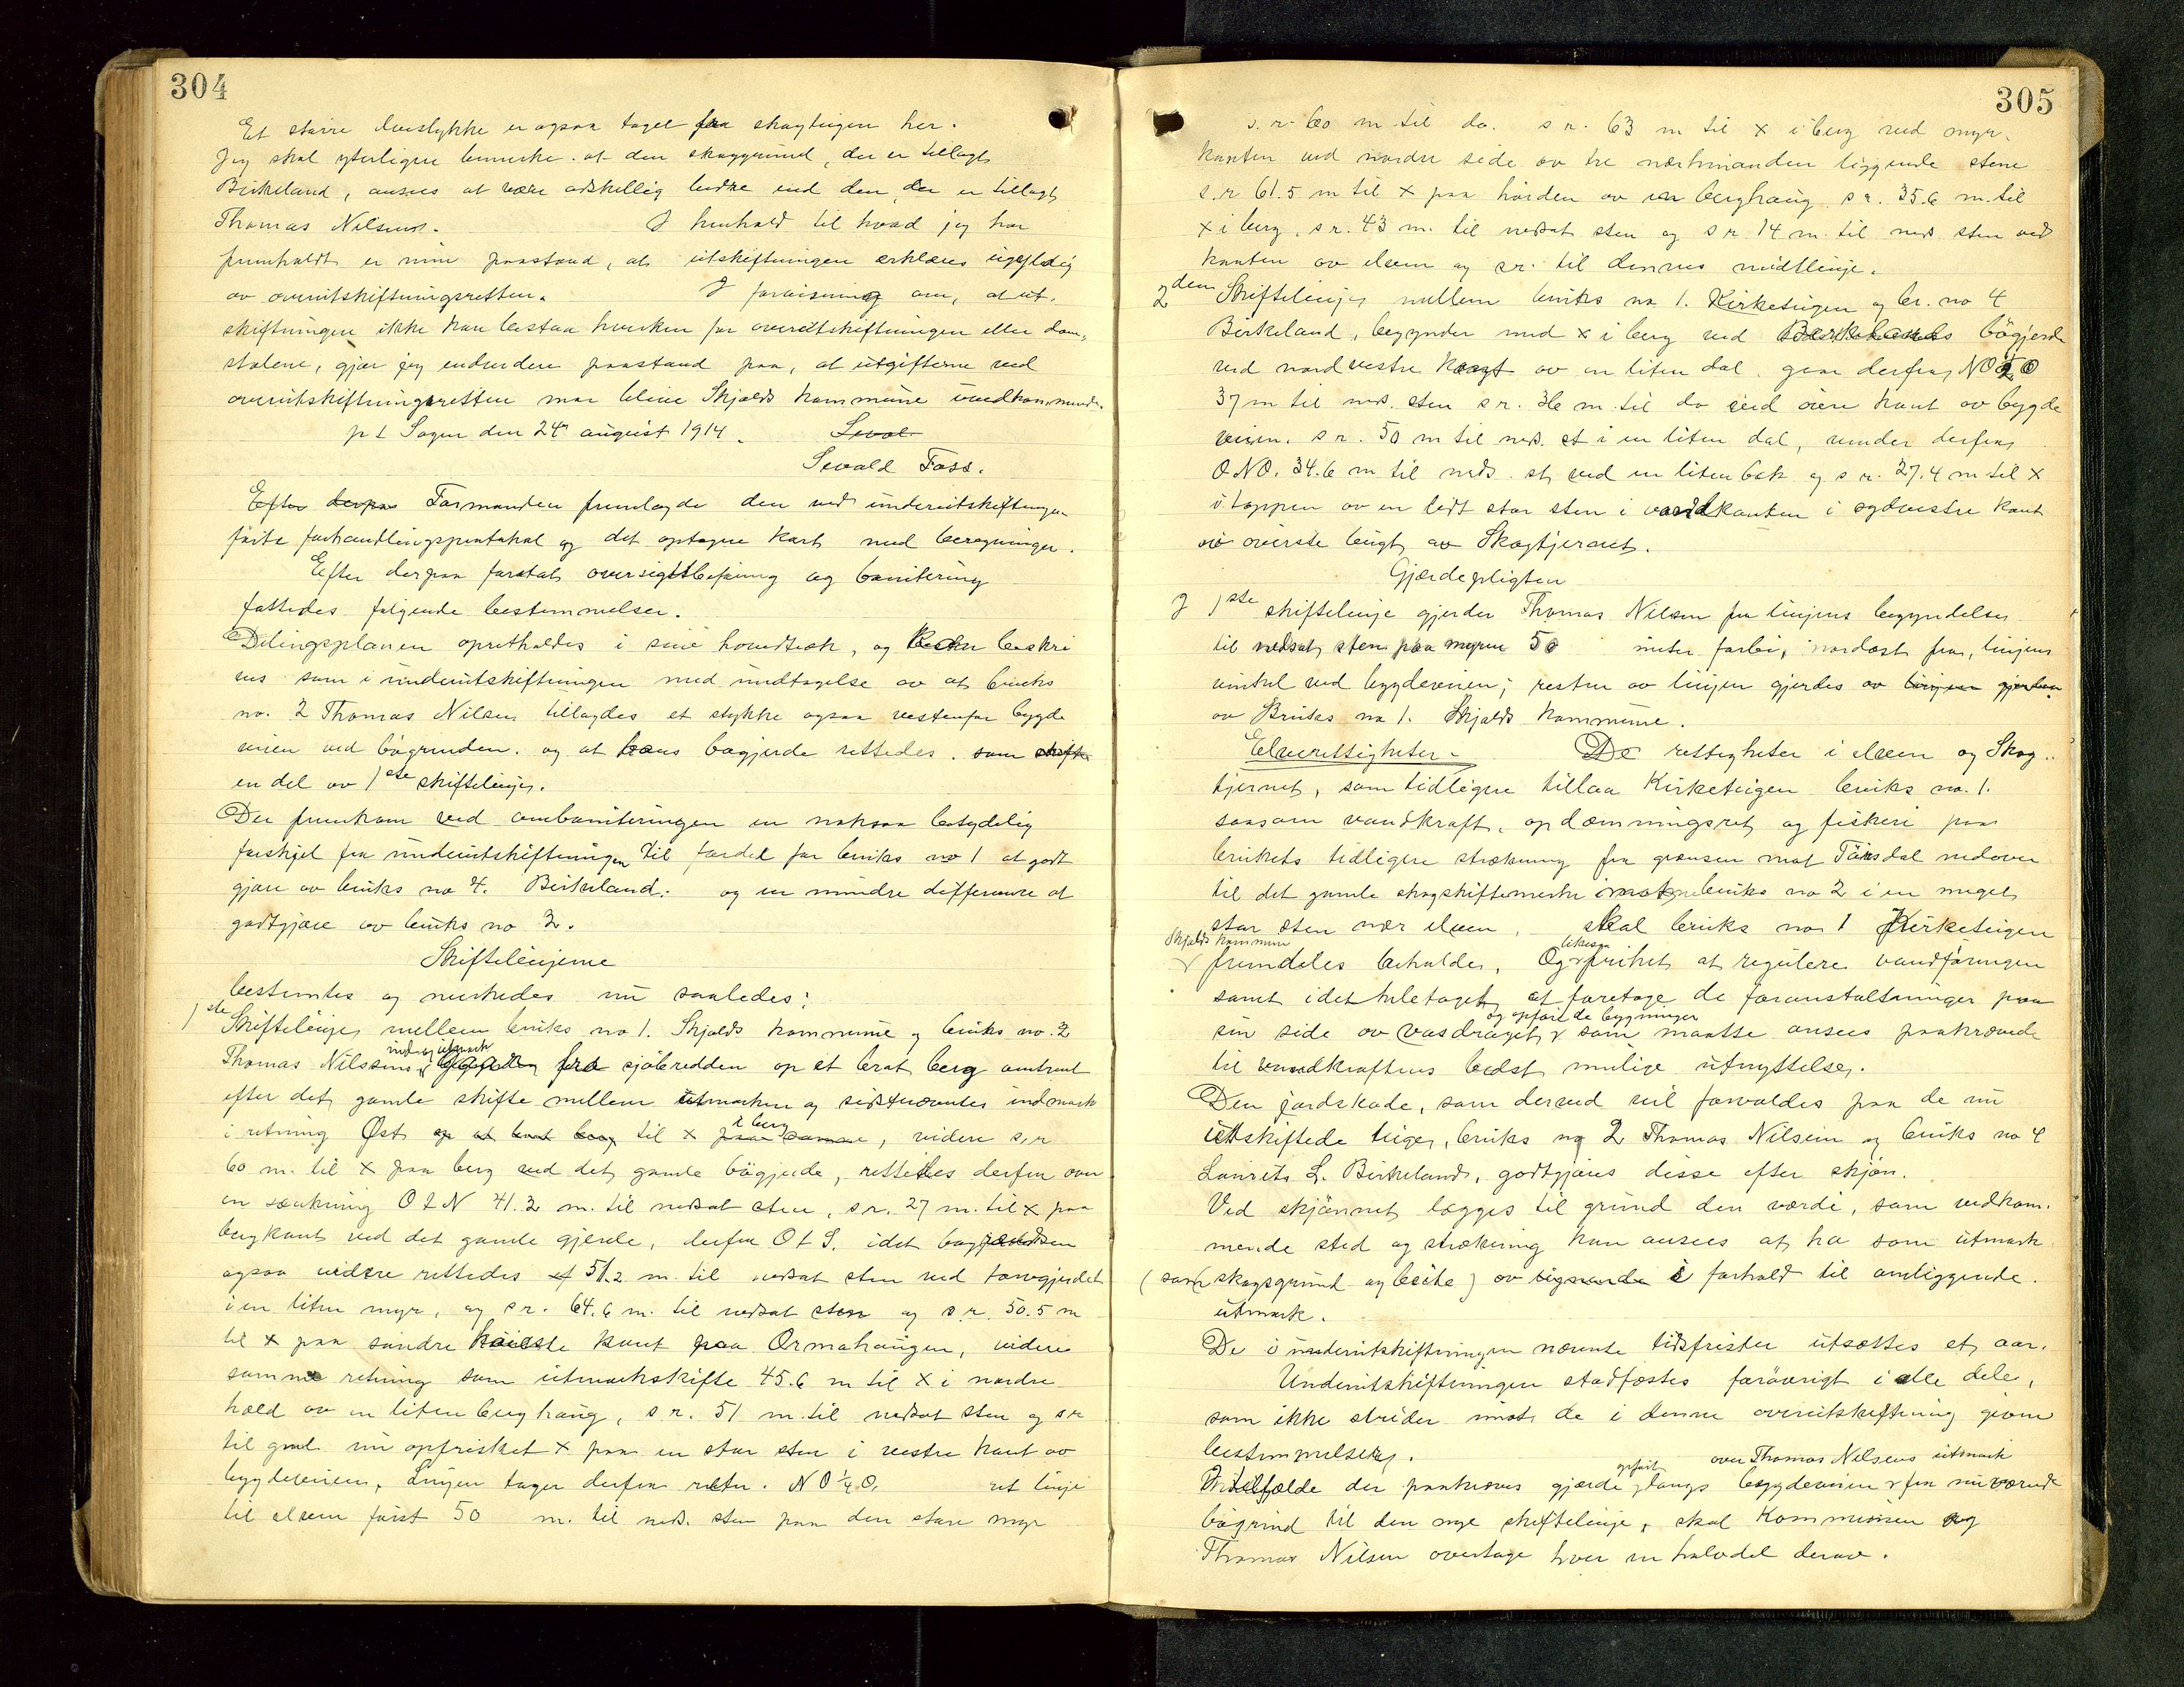 304
Et større elvestykke er ogsaa taget fra skogteigen her.
Jeg skal yterligere bemerke at den skoggrund, der er tillagt
Birkeland, ansees at være adskillig bedre end den, der er tillagt
Thomas Nilsens. I henhold til hvad jeg har
fremholdt er min paastand, at utskiftningen erklæres ugyldig
av overutskiftningsretten. I forvisning om, at ut-
skiftningen ikke kan bestaa hverken for overutskiftningen eller dom-
stolene, gjør jeg endvidere paastand paa, at utgifterne ved
overutskiftningsretten maa blive Skjolds kommune uvedkommende.
p t Sagen den 24de august 1914. Sevol
Sevald Foss.
Efter derpaa Formanden fremlagde den ved underutskiftningen
førte forhandlingsprotokol og det optagne kart med beregninger.
Efter derpaa foretat oversigtsbefaring og bonitering
fattedes følgende bestemmelser.
Delingsplanen opretholdes i sine hovedtræk, og beskri
ves som i underutskiftningen med undtagelse av at bruks
no. 2 Thomas Nilsen tillagdes et stykke ogsaa vestenfor bygde
veien ved bøgrinden. og at hans bøgjerde rettedes. som skifte
en del av 1ste skiftelinje.
Der fremkom ved omboniteringen en noksaa betydelig
forskjel fra underutskiftningen til fordel for bruks no 1 at godt
gjøre av bruks no 4. Birkeland. og en mindre differance at
godtgjøre av bruks no 2.
Skiftelinjerne
bestemtes og merkedes nu saaledes:
1ste Skiftelinje mellem bruks no 1. Skjolds kommune og bruks no. 2
ind og utmark
Thomas Nilssens fra sjøbredden op et brat berg omtrent
efter det gamle skifte mellem utmarken og sidstnævntes indmark
i berg
i retning Øst op et brat berg til x paa samme, videre s. r
60 m. til x paa berg ved det gamle bøgjerde, rettedes derfra over
en sænkning O t N 41.2 m. til nedsat sten, s r. 27 m. til x paa
bergkant ved det gamle gjerde, derfra O t S. idet bøgjerdet
ogsaa videre rettedes 51.2 m. til nedsat sten ved torvgjerdet
i en liten myr, og s r. 64.6 m. til nedsat sten og s. r. 50.5 m
til x paa søndre høieste kant paa Ormahaugen, videre
samme retning som utmarkskifte 45.6 m til x i nordre
hæld av en liten berghaug, s r. 51 m. til nedsat sten og s r
til gml. nu opfrisket x paa en stor sten i vestre kant av
bygdeveien, Linjen tager derfra retn. N O ¼ O. ret linje
til elven først 50 m. til neds. sten paa den store myr
305
s. r. 60 m til do. s r. 63 m til x i berg ved myr-
kanten ved nordre side av tre nærhinanden liggende stene
s. r 61.5 m til x paa høiden av en berghaug s r. 35.6 m. til
x i berg, s r. 43 m. til nedsat sten og s r 14 m til neds sten ved
kanten av elven og s r. til dennes midtlinje.
2den Skiftelinje mellem bruks no 1. Kirketeigen og br. no 4
Birkeland, begynder med x i berg ved Birkelands bøgjerde
ved nordvestre kant av en liten dal, gaar derfra NO
37 m til neds. sten s r. 36 m til do ved øvre kant av bygde
veien. s r. 50 m til neds. st i en liten dal, vender derfra
O.NO. 34.6 m til neds. st. ved en liten bæk og s r. 27.4 m til x
i toppen av en lidt stor sten i vandkanten i sydvestre kant
av øverste bugt av Skogtjernet.
Gjærdepligten
I 1ste skiftelinje gjerder Thomas Nilsen fra linjens begyndelse
til nedsat sten paa myren 50 meter forbi, nordøst fra, linjens
vinkel ved bygdeveien; resten av linjen gjerdes av
av Bruks no 1. Skjolds kommune.
Elverettigheter. De rettigheter i elven og Skog-
tjernet, som tidligere tillaa Kirketeigen bruks no. 1.
saasom vandkraft, opdæmningsret og fiskeri paa
brukets tidligere strækning fra grænsen mot Tønsdal nedover
til det gamle skogskiftemerke mot bruks no 2 i en meget
stor sten nær elven, skal bruks no 1 Kirketeigen
Skjolds kommune likesaa
fremdeles beholde, Og frihet at regulere vandføringen
samt i det hele taget at foretage de foranstaltninger paa
og opføre de bygninger
sin side av vasdraget som maatte ansees paakrævede
til vandkraftens bedst mulige utnyttelse.
Den jordskade, som derved vil forvoldes paa de nu
utskiftede teiger, bruks no 2 Thomas Nilsen og bruks no 4
Laurits L. Birkeland, godtgjøres disse efter skjøn.
Ved skjønnet lægges til grund den værdi, som vedkom-
mende sted og strækning kan ansees at ha som utmark
(som skogsgrund og beite) i forhold til omliggende
utmark.
De i underutskiftningen nævnte tidsfrister utsættes et aar.
Underutskiftningen stadfæstes forøvrigt i alle dele,
som ikke strider imot de i denne overutskiftning givne
bestemmelser.
opført over Thomas Nilsens utmark
I tilfælde der paakræves gjerde langs bygdeveien fra nuværende
bøgrind til den nye skiftelinje, skal Kommunen og
Thomas Nilsen overtage hver en halvdel derav.